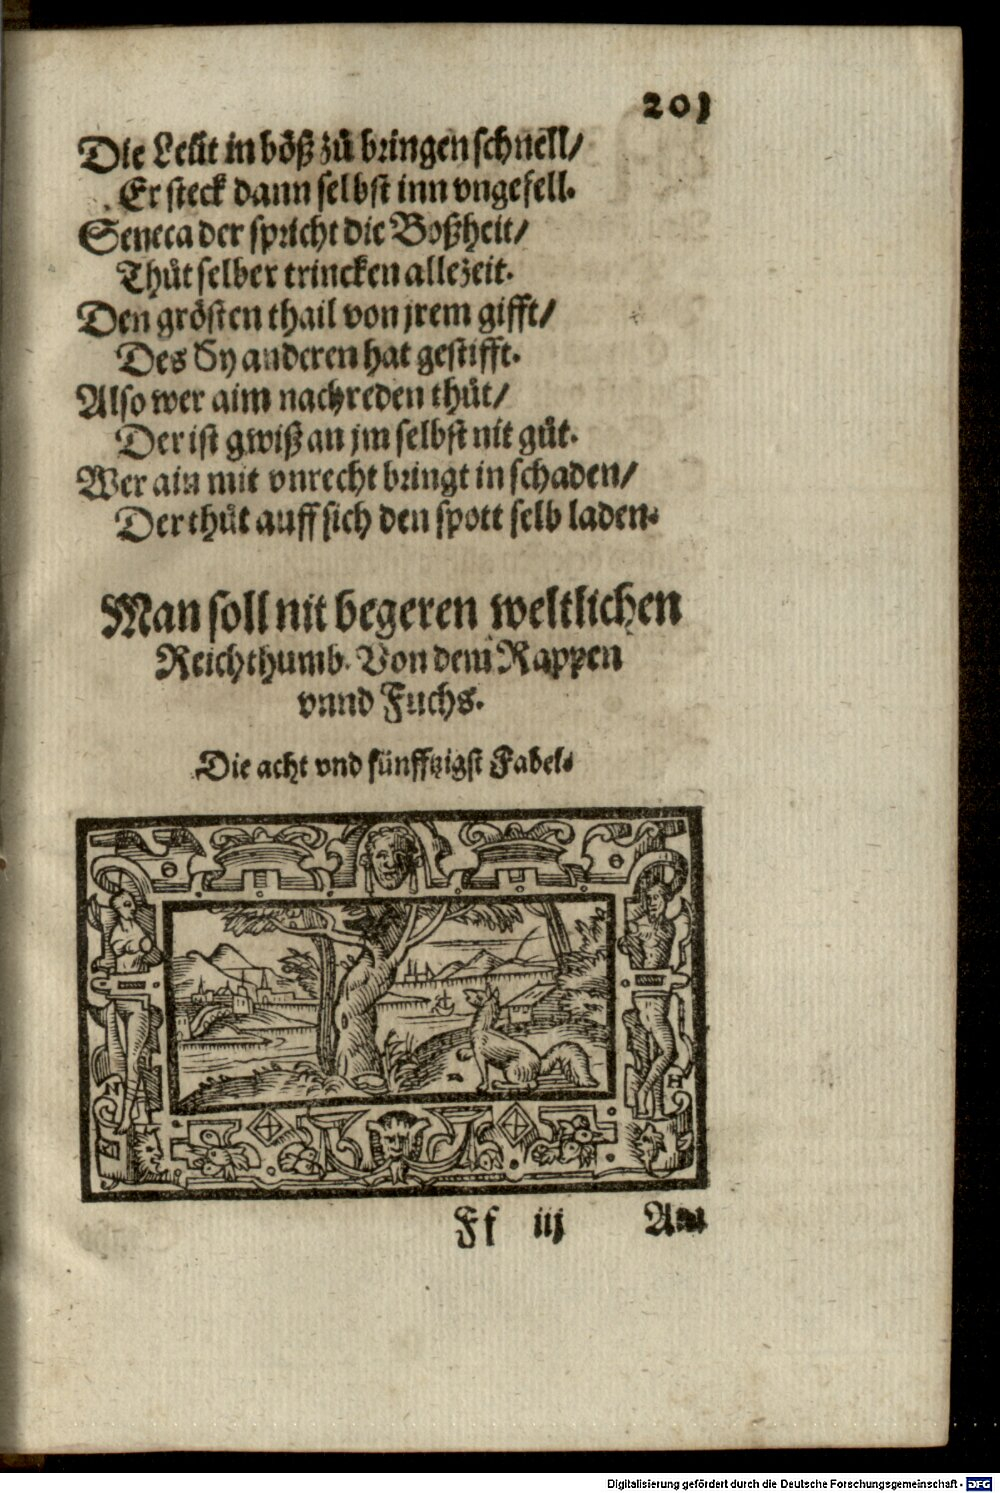 201
Die Leüt in böß zů bringen schnell/
Er steck dann selbst inn vngefell.
Seneca der spricht die Boßheit/
Thůt selber trincken allezeit.
Den grösten thail von jrem gifft/
Des Sy anderen hat gestifft.
Also wer aim nachreden thůt/
Der ist gwiß an jm selbst nit gůt.
Wer ain mit vnrecht bringt in schaden/
Der thůt auff sich den spott selb laden.
Man soll nit begeren weltlichen
Reichthumb. Von dem Rappen
vnnd Fuchs.
Die acht vnd fünfftzigst Fabel.
Ff iij
Digitalisierung gefördert durch die Deutsche Forschungsgemeinschaft - DFG